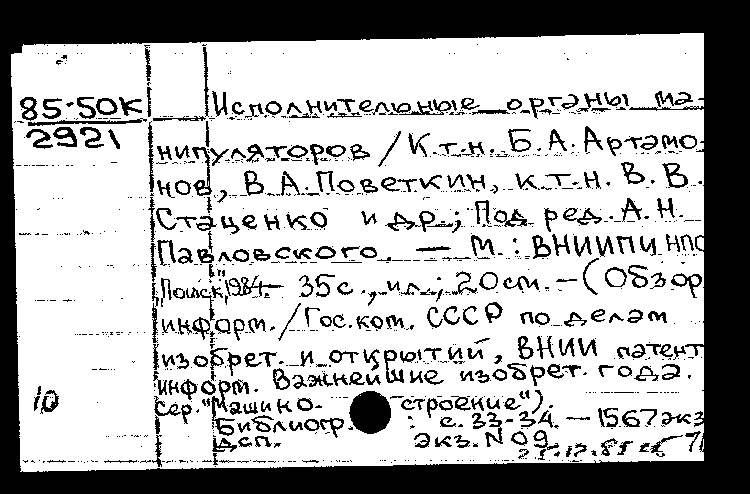 85-50К Исполнительные органы ма-
2921
нипуляторов / К.т.н. Б.А. Артамо-
нов, В.А. Поветкин, к.т.н. В.В.
Стаценко и др.; Под ред. А.Н.
Павловского. — М.: ВНИИПИ НПО
"Поиск", 1984. — 35с., ил.; 20см. — (Обзор.
информ. / Гос. ком. СССР по делам
изобрет. и открытий, ВНИИ патент.
информ. Важнейшие изобрет. года.
10 Сер. "Машино- строение").
Библиогр.: с. 33-34. — 1567экз
Дсп. Экз. N 09